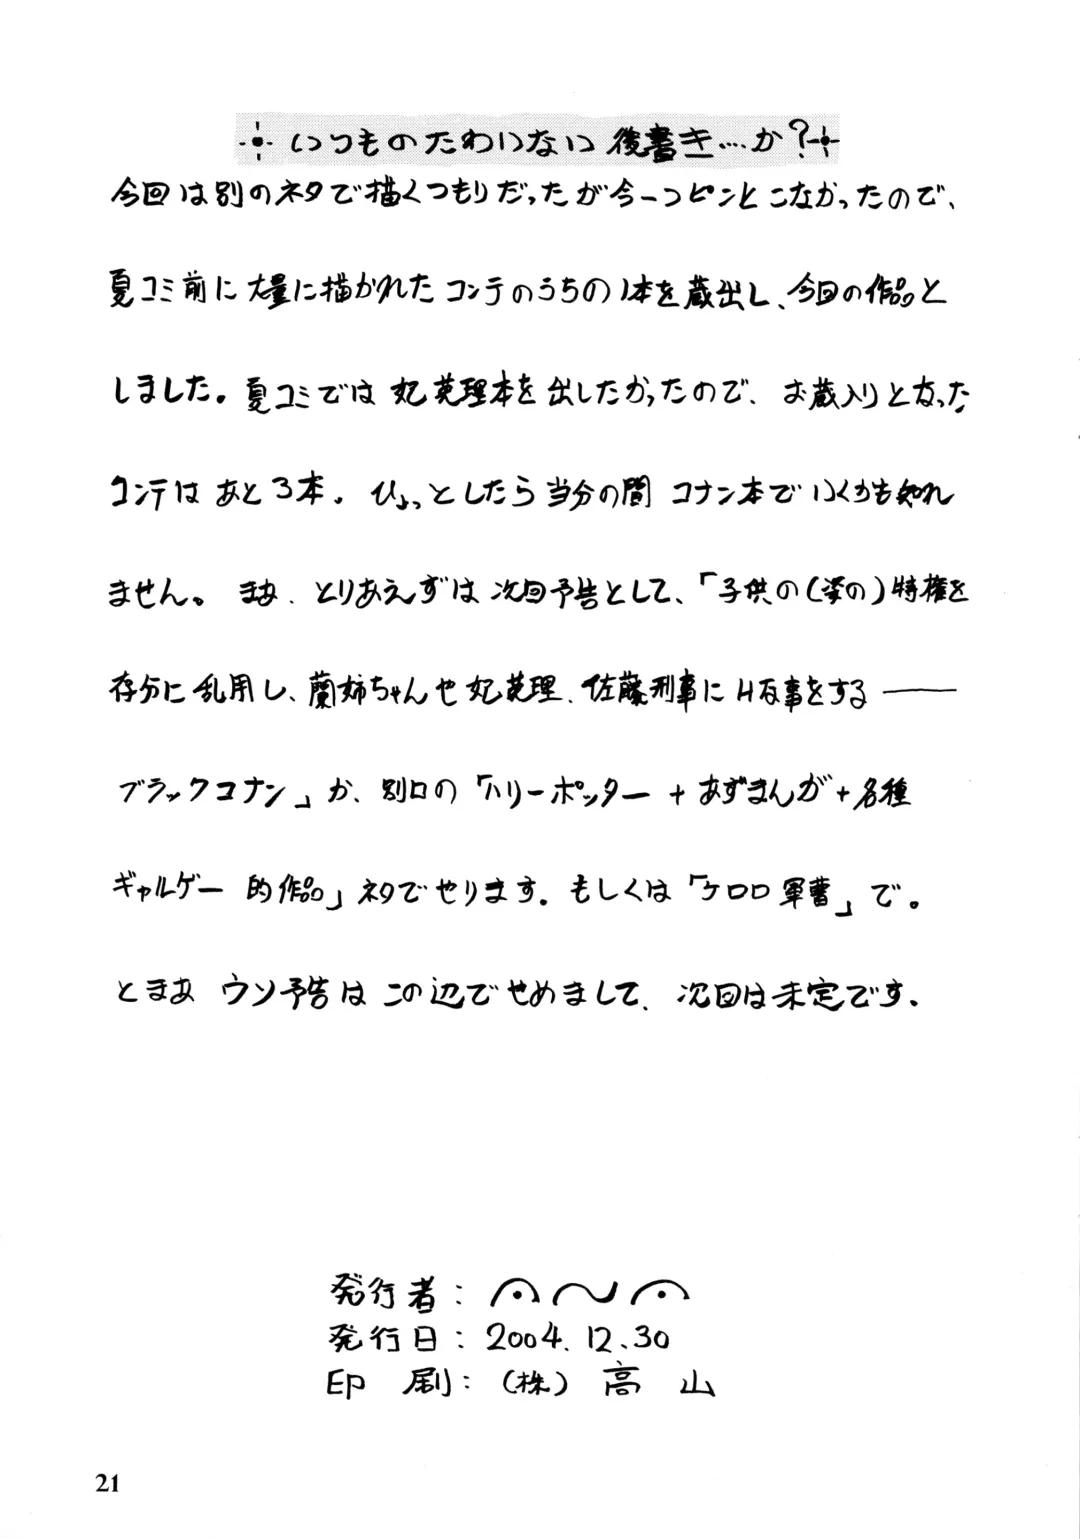 いつものたわいない後書き…か?
今回は別のネタで描くつもりだったが今一つピンとこなかったので、
夏コミ前に大量に描かれたコンテのうちの1本を蔵出し、今回の作品と
しました。夏コミでは妃英理本を出したかったので、お蔵入りとなった
コンテはあと3本。ひょっとしたら当分の間コナン本でいくかも知れ
ません。まあ、とりあえずは次回予告として、「子供の(姿の)特権を
存分に乱用し、蘭姉ちゃんや妃英理、佐藤刑事にHな事をする——
ブラックコナン」か、別口の「ハリーポッター+あずまんが+各種
ギャルゲー的作品」ネタでやります。もしくは「ケロロ軍曹」で。
とまあ ウソ予告はこの辺でせめまして、次回は未定です。
発行者:
発行日:2004.12.30
印 刷:(株)高 山
21